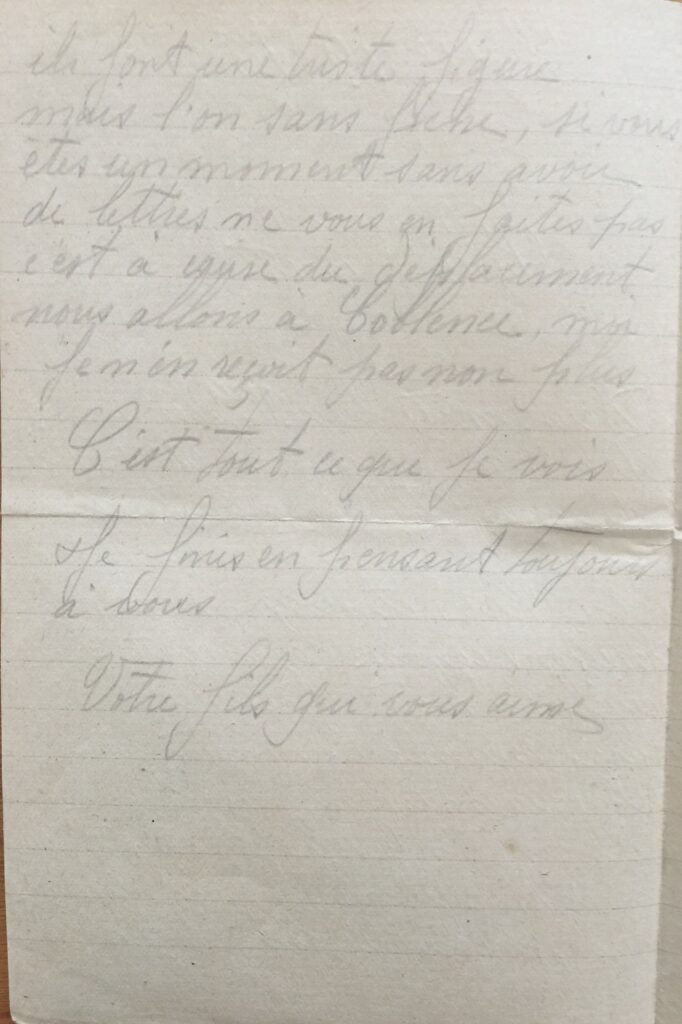 ils font une triste figure
mais l'on sans fiche, si vous
êtes un moment sans avoir
de lettres ne vous en faites pas
c'est à cause du déplacement
nous allons à Coblence, moi
je n'en reçoit pas non plus
C'est tout ce que je vois
Je finis en pensant toujours
à vous
Votre fils qui vous aime